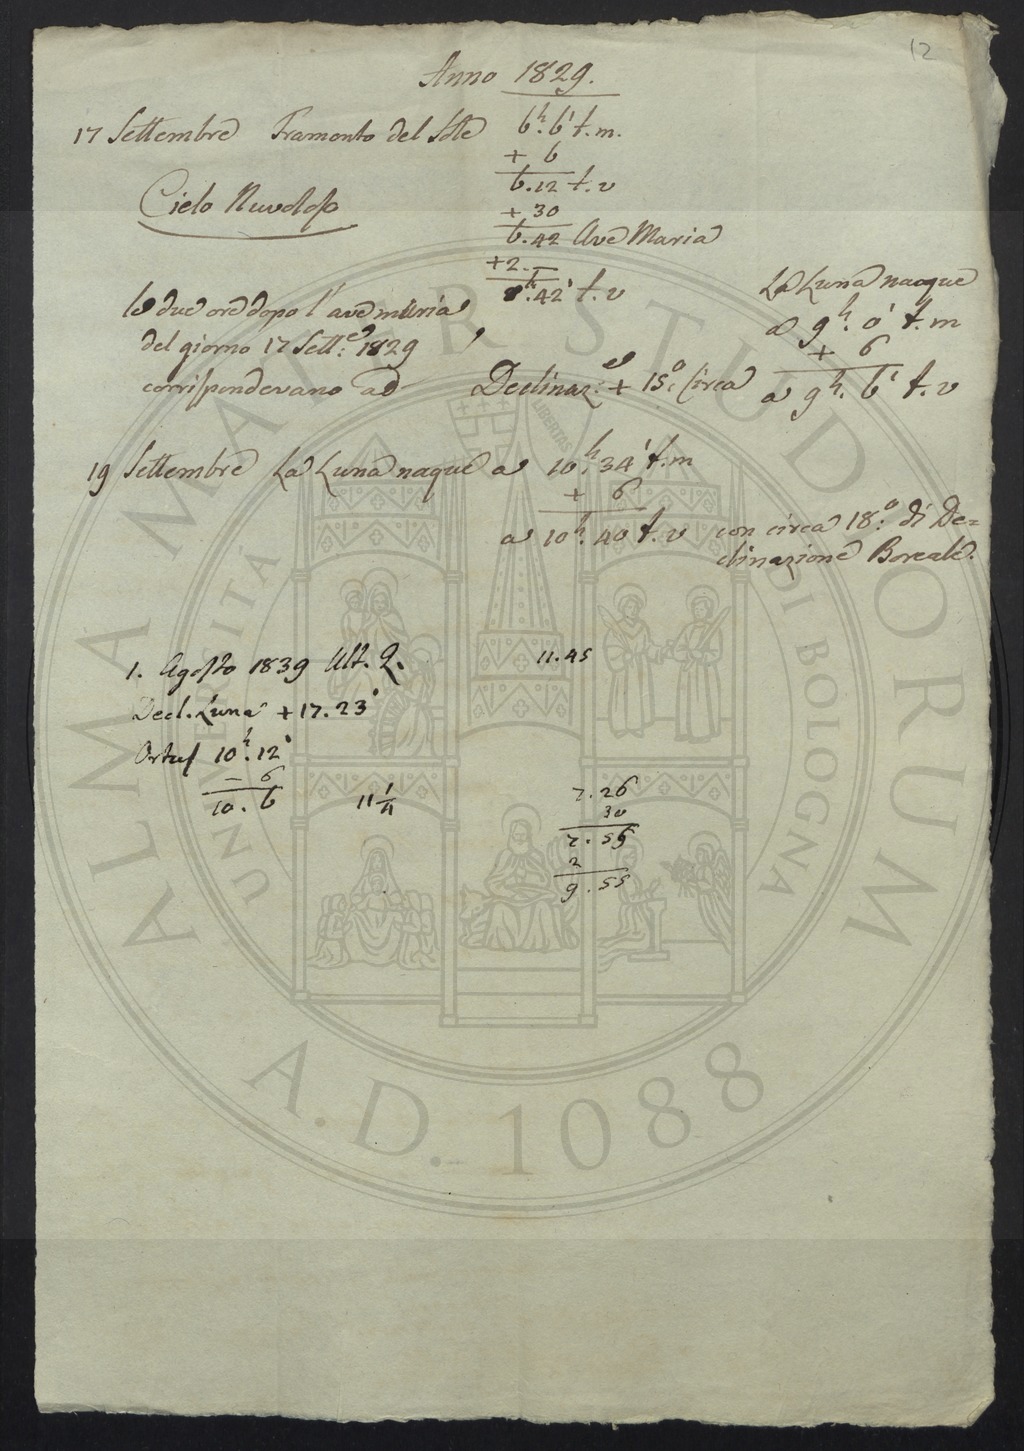 12
Anno 1829.
17 Settembre Tramonto del Sole 6h. 6' t.m.
+ 6
6.12 t.v
Cielo Nuvoloso
+ 30
6.42 Ave Maria
+2. —
8h. 42' t.v
le due ore dopo l'ave maria
del giorno 17 Sett:e 1829
corrispondevano ad
La Luna nacque
a 9h. 0' t.m
+ 6
a 9h. 6' t.v
Declinaz:e + 15°. Circa
19 Settembre La Luna naque a 10h. 34' t.m
+ 6
a 10h. 40 t.v con circa 18.° di De=
clinazione Boreale.
1. Agosto 1839 Ult. Q. 11.45
Decl. Luna + 17.23'
Ortus 10h. 12'
— 6
10. 6
11 1/4
7.26
30
7.56
2
9.55
ALMA MATER STUDIORUM
UNIVERSITÀ DI BOLOGNA
LIBERTAS
A.D. 1088